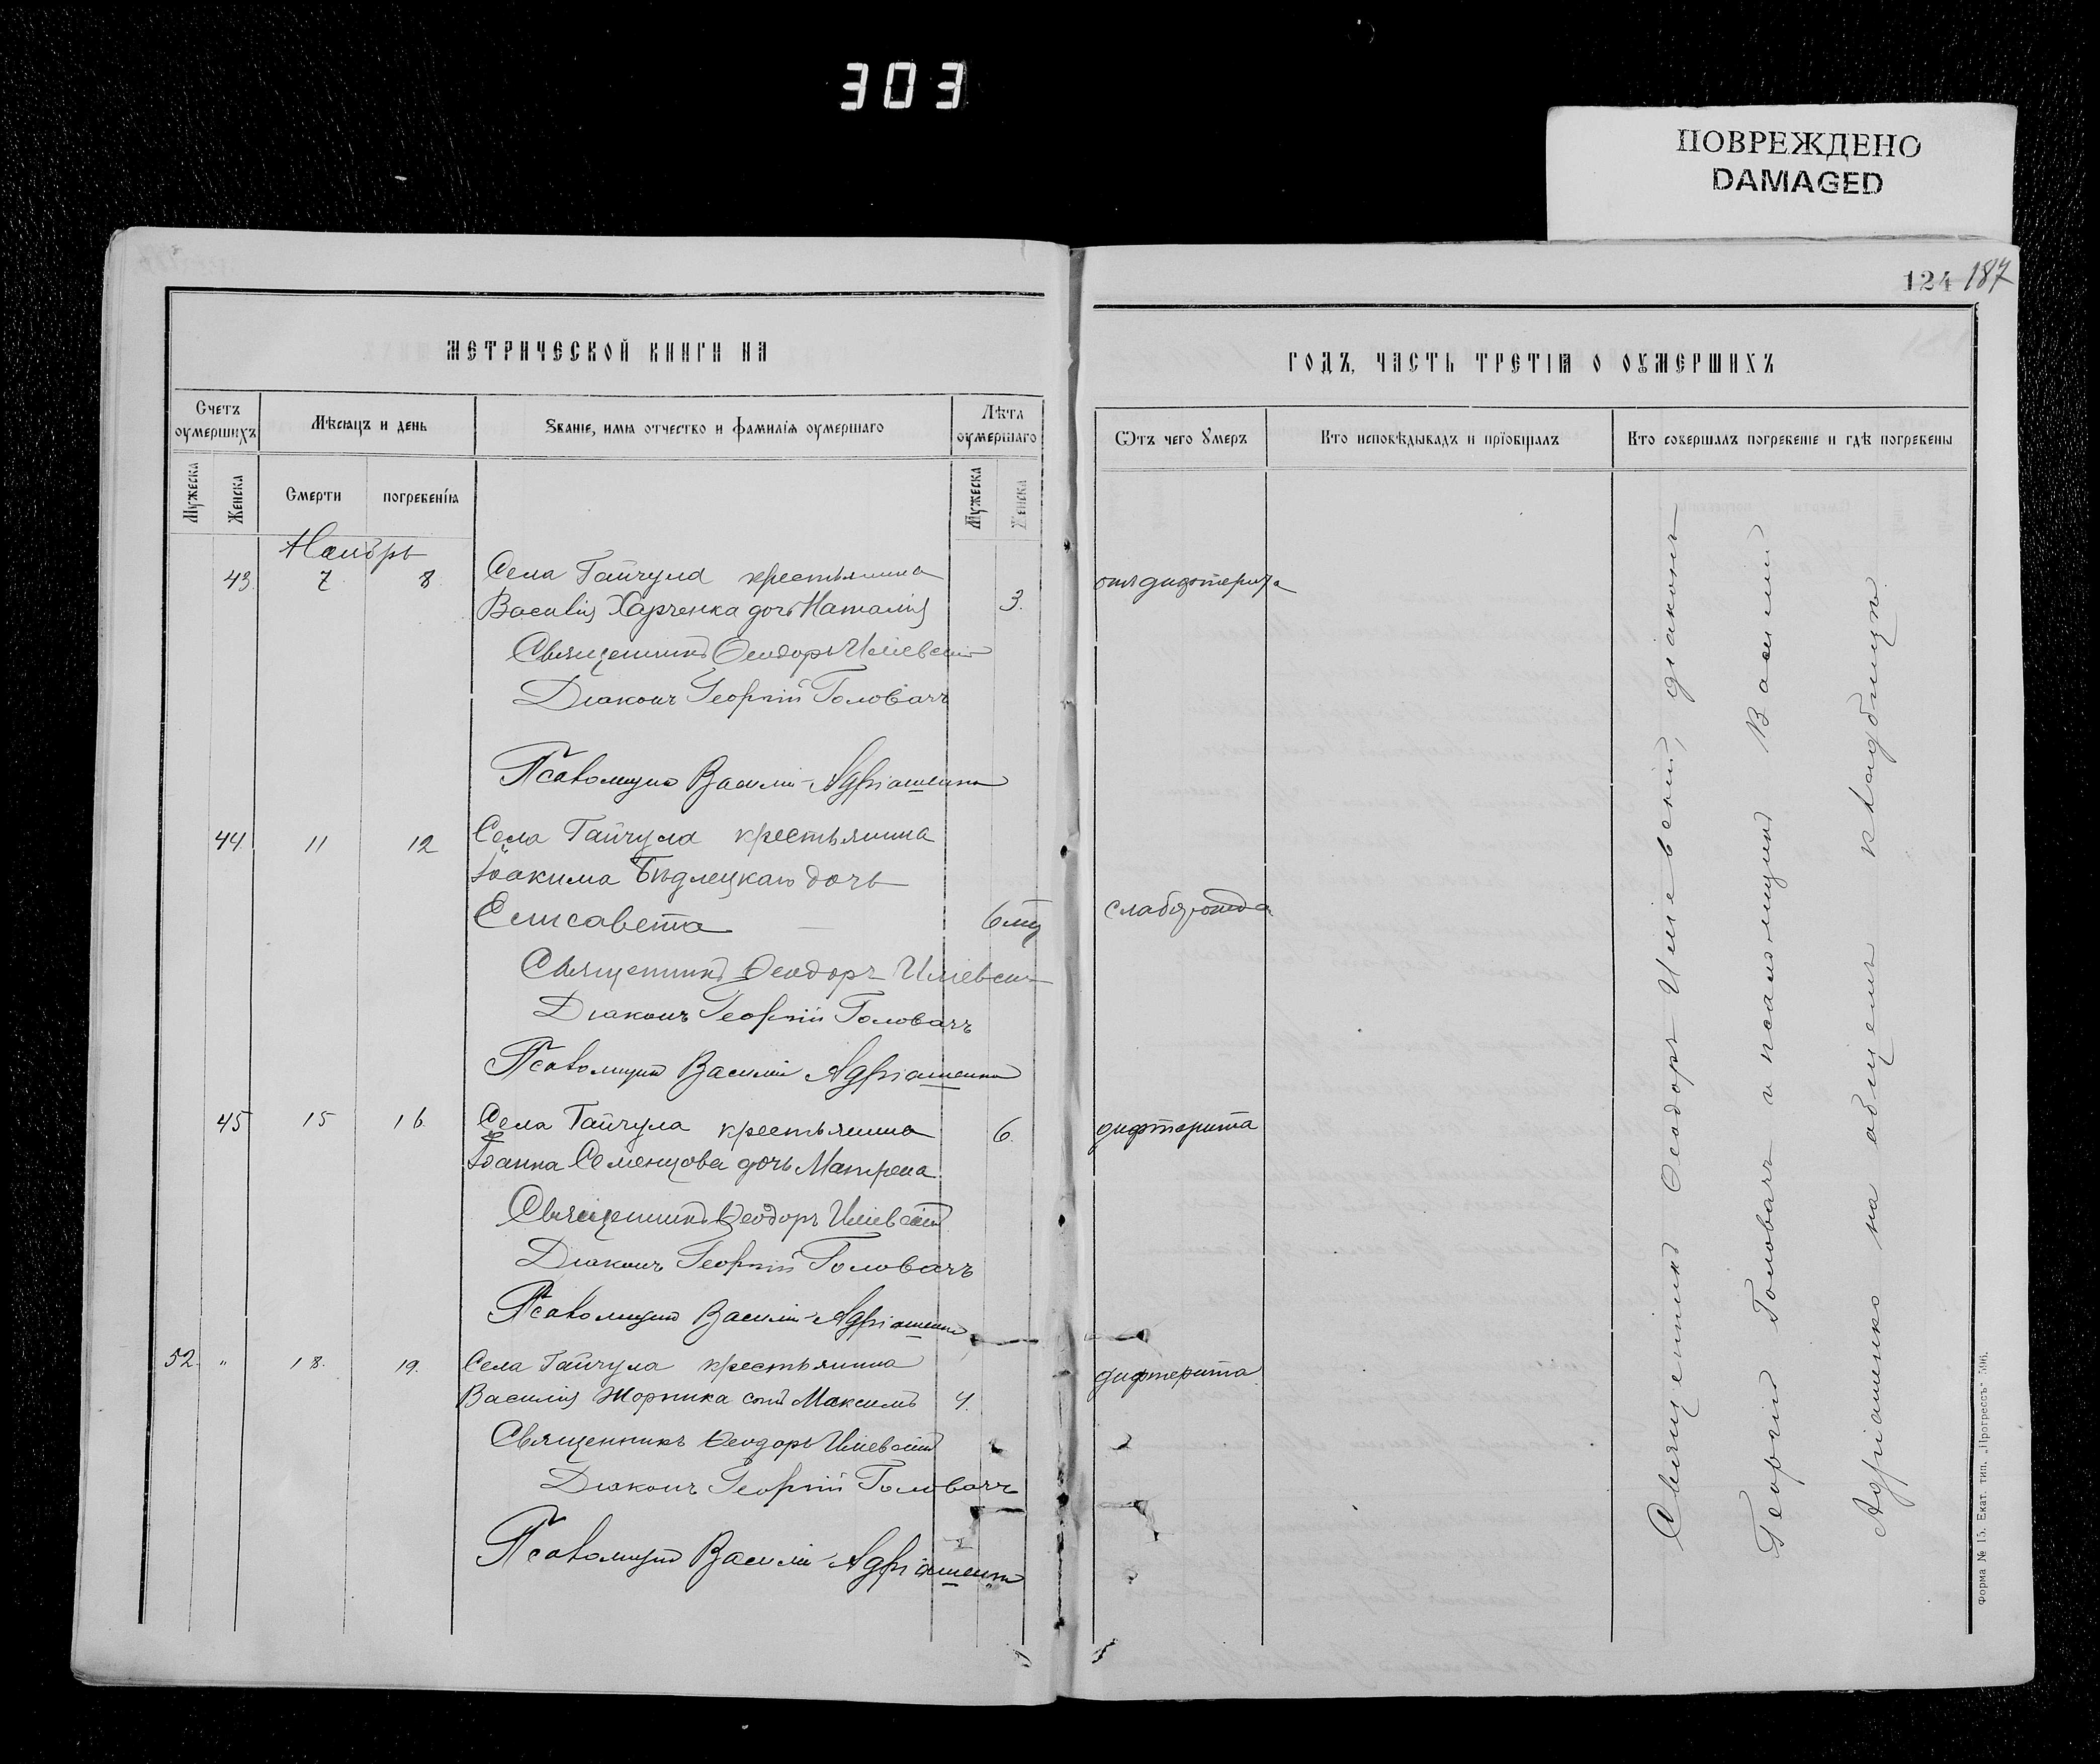 303
ПОВРЕЖДЕНО
DAMAGED
МЕТРИЧЕСКОЙ КНИГИ НА
Счетъ оумершихъ
Мѣсяцъ и день
Званіе, имя отчество и фамилія оумершаго
Лѣта оумершаго
Мужеска
Женска
Смерти
погребенія
Мужеска
Женска
Ноябрь
43. 7 8. Села Гайчула крестьянина
Василія Харченка дочь Наталія 3.
Священникъ Ѳеодоръ Иліевскій
Діаконъ Георгій Головачъ
Псаломщикъ Василій Адріашенко
44. 11 12 Села Гайчула крестьянина
Іоакима Бѣдлецкаго дочь
Елисавета 6 мц
Священникъ Ѳеодоръ Иліевскій
Діаконъ Георгій Головачъ
Псаломщикъ Василій Адріашенко
45 15 16. Села Гайчула крестьянина 6.
Іоанна Семенцова дочь Матрена
Священникъ Ѳеодоръ Иліевскій
Діаконъ Георгій Головачъ
Псаломщикъ Василій Адріашенко
52. " 18. 19. Села Гайчула крестьянина
Василія Жорника сынъ Максимъ 4.
Священникъ Ѳеодоръ Иліевскій
Діаконъ Георгій Головачъ
Псаломщикъ Василій Адріашенко
124 187
ГОДЪ, ЧАСТЬ ТРЕТІЯ О ОУМЕРШИХЪ
Ѿтъ чего Умеръ
Кто исповѣдывалъ и пріобщалъ
Кто совершалъ погребеніе и гдѣ погребены
отъ дифтерита
слабости
дифтерита
дифтерита
Священникъ Ѳеодоръ Иліевскій, діаконъ
Георгій Головачъ и псаломщикъ Василій
Адріашенко на общемъ кладбищѣ.
Форма № 15. Екат. тип. „Прогрессъ" 596.